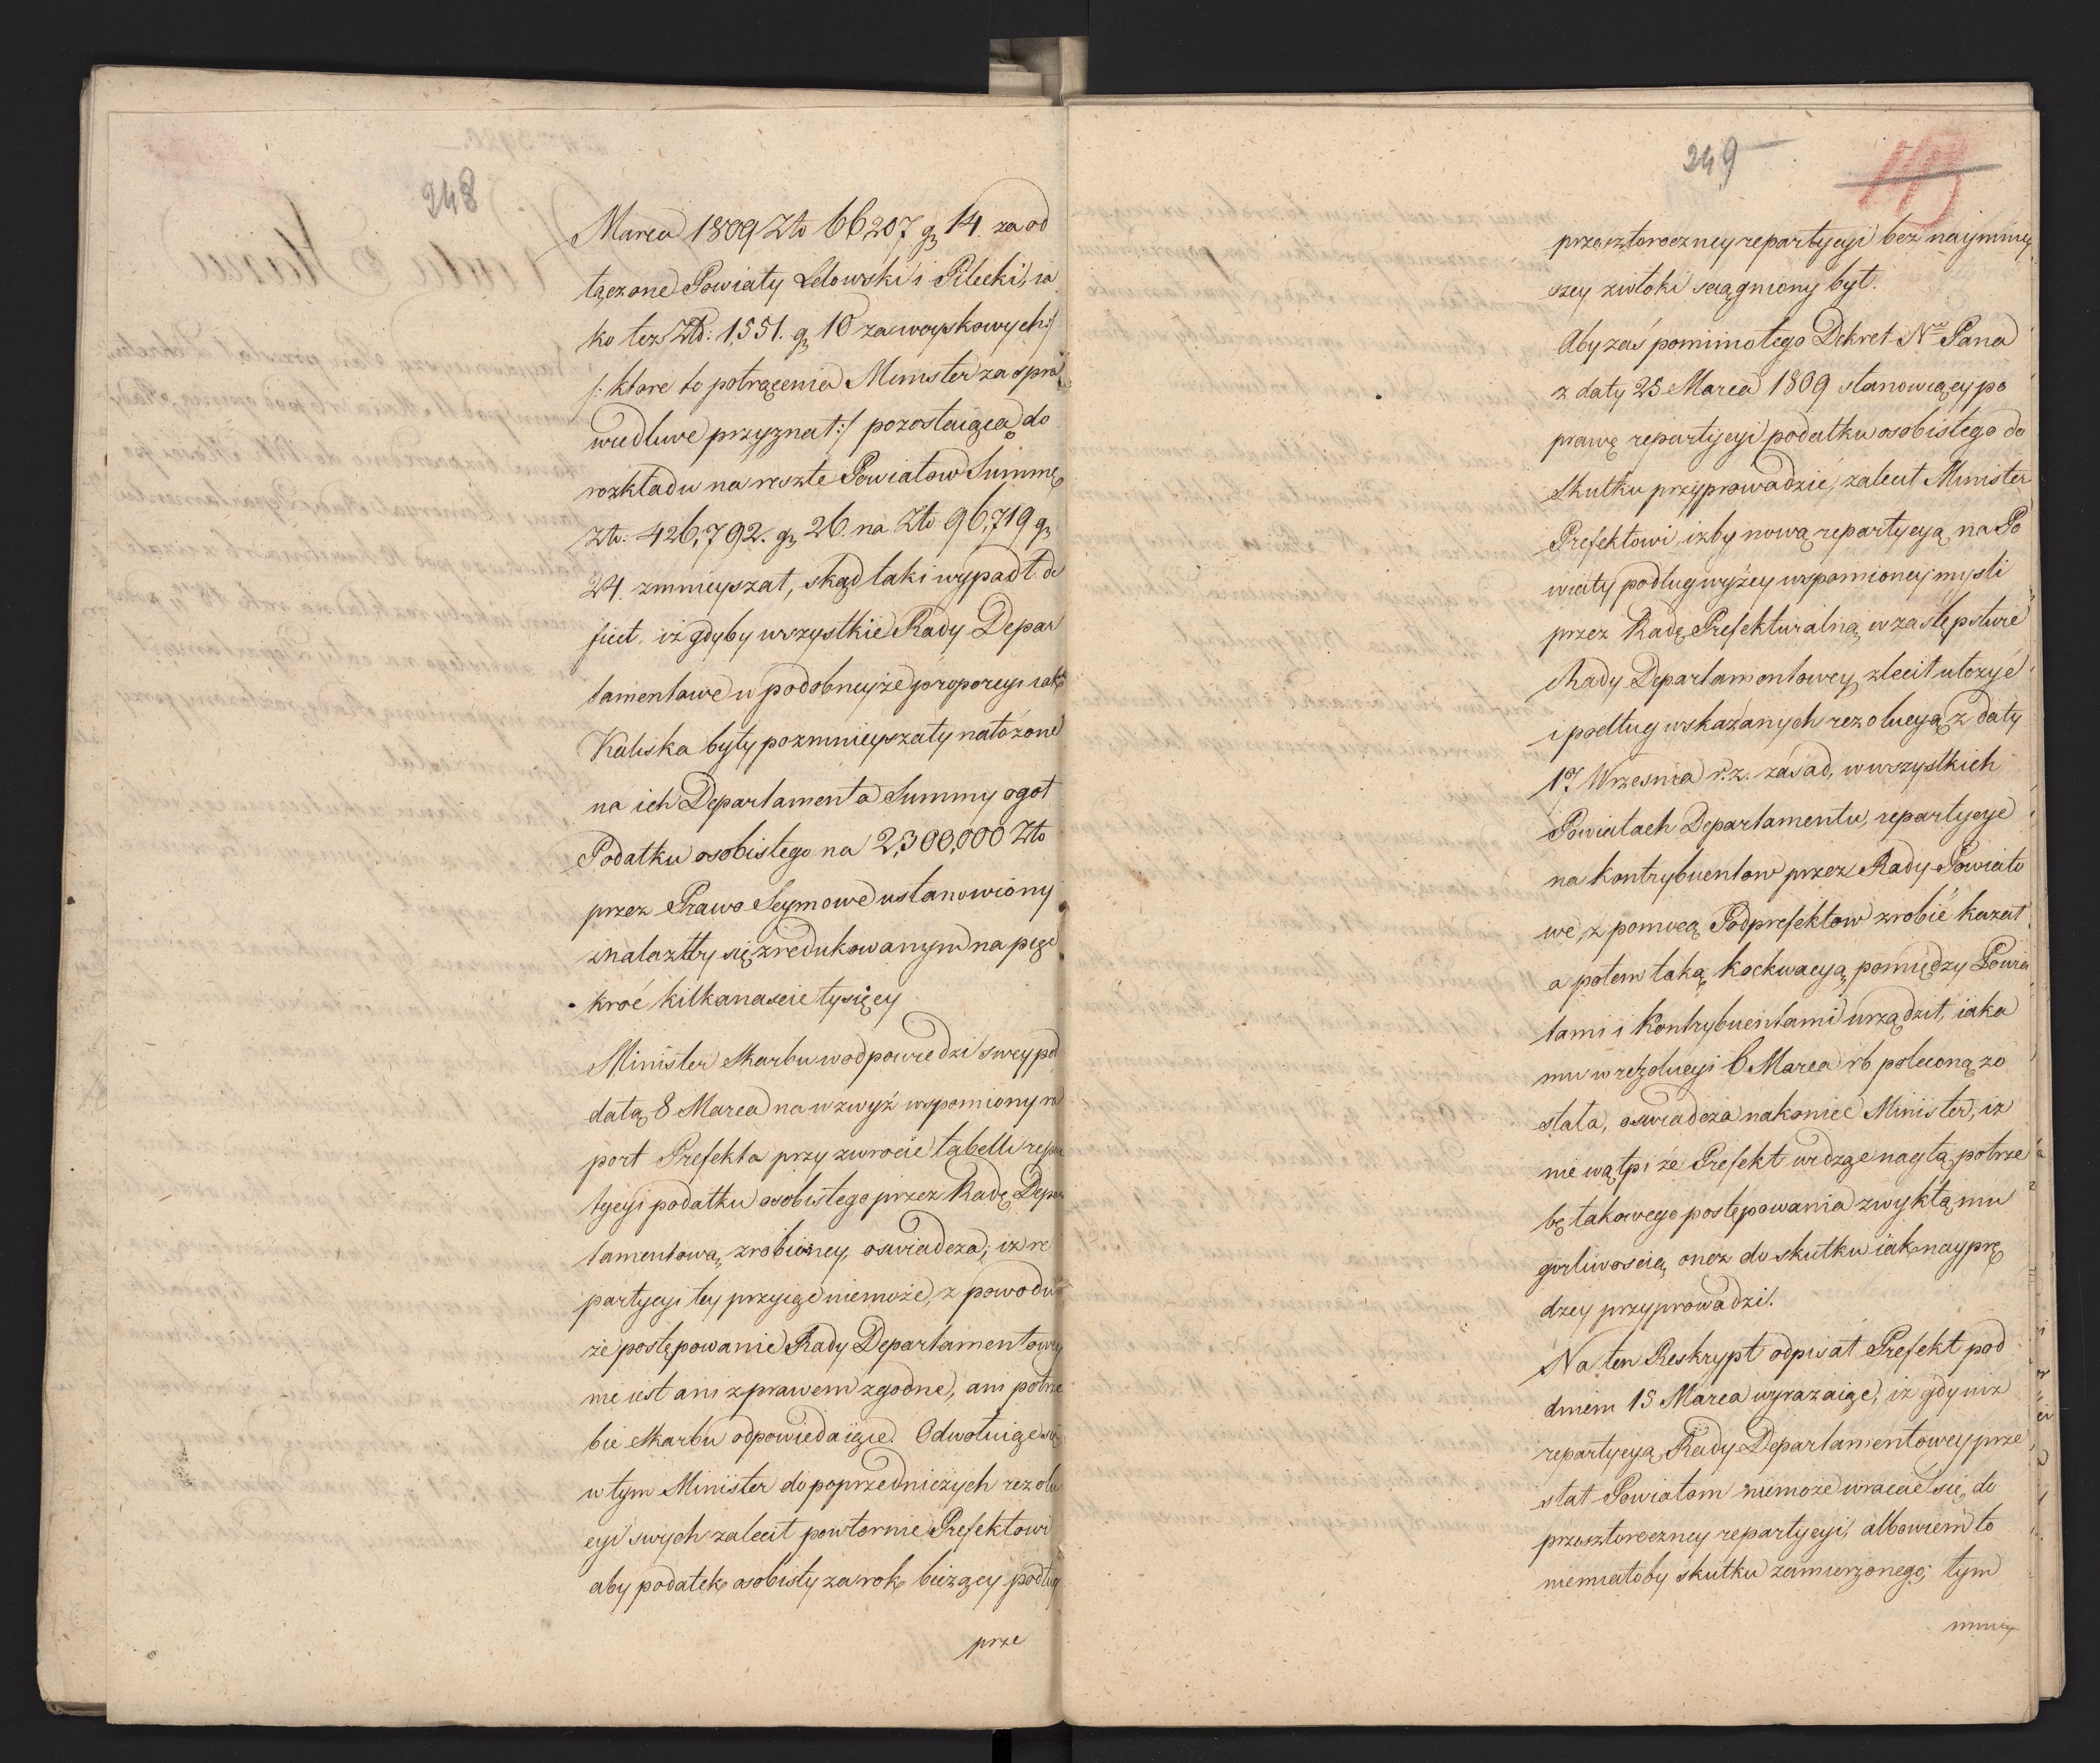 248
Marca 1809 Zło 66,207 gr 14. za od
łączone Powiaty Lelowski i Pilecki, ia
ko też Złł: 1,551. gr 10 za woyskowych:/
/: ktore to potrącenia Minister za spra
wiedliwe przyznał:/ pozostaiącą do
rozkładu na reszte Powiatow Summę
Zło: 426,792. gr 26. na Zło 96,719 gr
24. zmnieyszał, skąd taki wypadł de
ficit. iż gdyby wszystkie Rady Depar
tamentowe w podobneyże proporcyi iak
Kaliska były pozmnieyszały nałożone
na ich Departamenta Summy ogoł
Podatku osobistego na 2,300,000 Zło
przez Prawo Seymowe ustanowiony
znalazłby się zredukowanym na pięć
kroć kilkanaście tysięcy
Minister Skarbu w odpowiedzi swey pod
datą 8 Marca na wzwyż wspomiony ra
port Prefekta przy zwrocie tabelli repar
tycyi podatku osobistego przez Radę Depar
tamentową zrobioney, oswiadcza; iż re
partycyi tey przyiąć niemoże, z powodu
że postępowanie Rady Departamentowey
nie iest ani z prawem zgodne, ani potrze
bie Skarbu odpowiedaiące. Odwołuiąc się
w tym Minister do poprzedniczych rezolu
cyi swych zalecił powtornie Prefektowi
aby podatek osobisty za rok bieżący podług
prze
249
113
przeszłoroczney repartycyi bez naymniey
szey zwłoki sciągniony był.
Aby zaś pomimo tego Dekret No Pana
z daty 25 Marca 1809 stanowiący po
prawę repartycyi podatku osobistego do
skutku przyprowadzić, zalecił Minister
Prefektowi, izby nową repartycyą na Po
wiaty podług wyżey wspomioney mysli
przez Radę Prefekturalną, w zastępstwie
Rady Departamentowey, zlecił ułożyć
i podług wskazanych rezolucyą z daty
17 Wrzesnia r. z. zasad, we wszystkich
Powiatach Departamentu, repartycye
na kontrybuentow przez Rady Powiato
we, z pomocą Podprefektow zrobić kazał
a potem taką koekwacyą pomiędzy Powia
tami i Kontrybuentami urządził, iaka
mu w rezolucyi 6 Marca rb poleconą zo
stała, oswiadcza nakoniec Minister, iz
nie wątpi że Prefekt widząc nagłą potrze
bę takowego postępowania zwykłą mu
gorliwoscią, onoż do skutku iak nayprę
dzey przyprowadzi.
Na ten Reskrypt odpisał Prefekt pod
dniem 15 Marca wyrazaiąc, iż gdy niż
repartycyą Rady Departamentowey prze
słał Powiatom niemoże wracać się do
przeszłoroczney repartycyi, albowiem to
niemiałoby skutku zamierzonego; tym
mniey